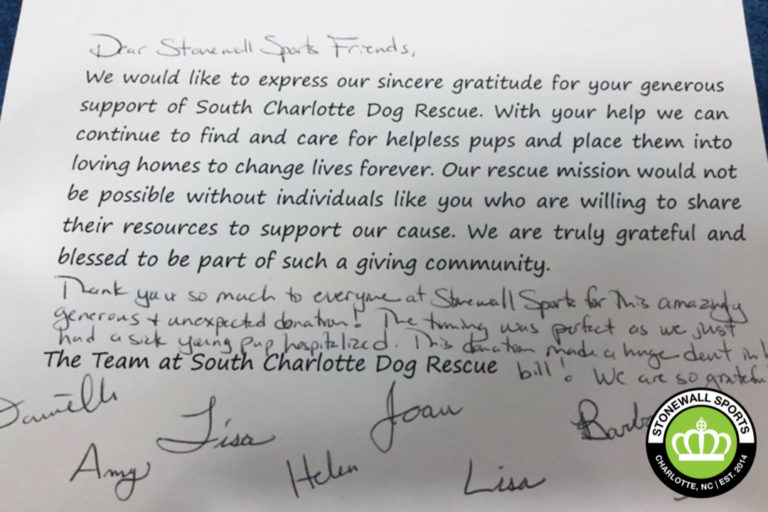 Dear Stonewall Sports Friends,
We would like to express our sincere gratitude for your generous
support of South Charlotte Dog Rescue. With your help we can
continue to find and care for helpless pups and place them into
loving homes to change lives forever. Our rescue mission would not
be possible without individuals like you who are willing to share
their resources to support our cause. We are truly grateful and
blessed to be part of such a giving community.
Thank you so much to everyone at Stonewall Sports for this amazingly
generous + unexpected donation! The timing was perfect as we just
had a sick young pup hospitalized. This donation made a huge dent in
The Team at South Charlotte Dog Rescue bill! We are so grateful
Danielle Lisa Joan Barb
Amy Helen Lisa
STONEWALL SPORTS
CHARLOTTE, NC | EST. 2014